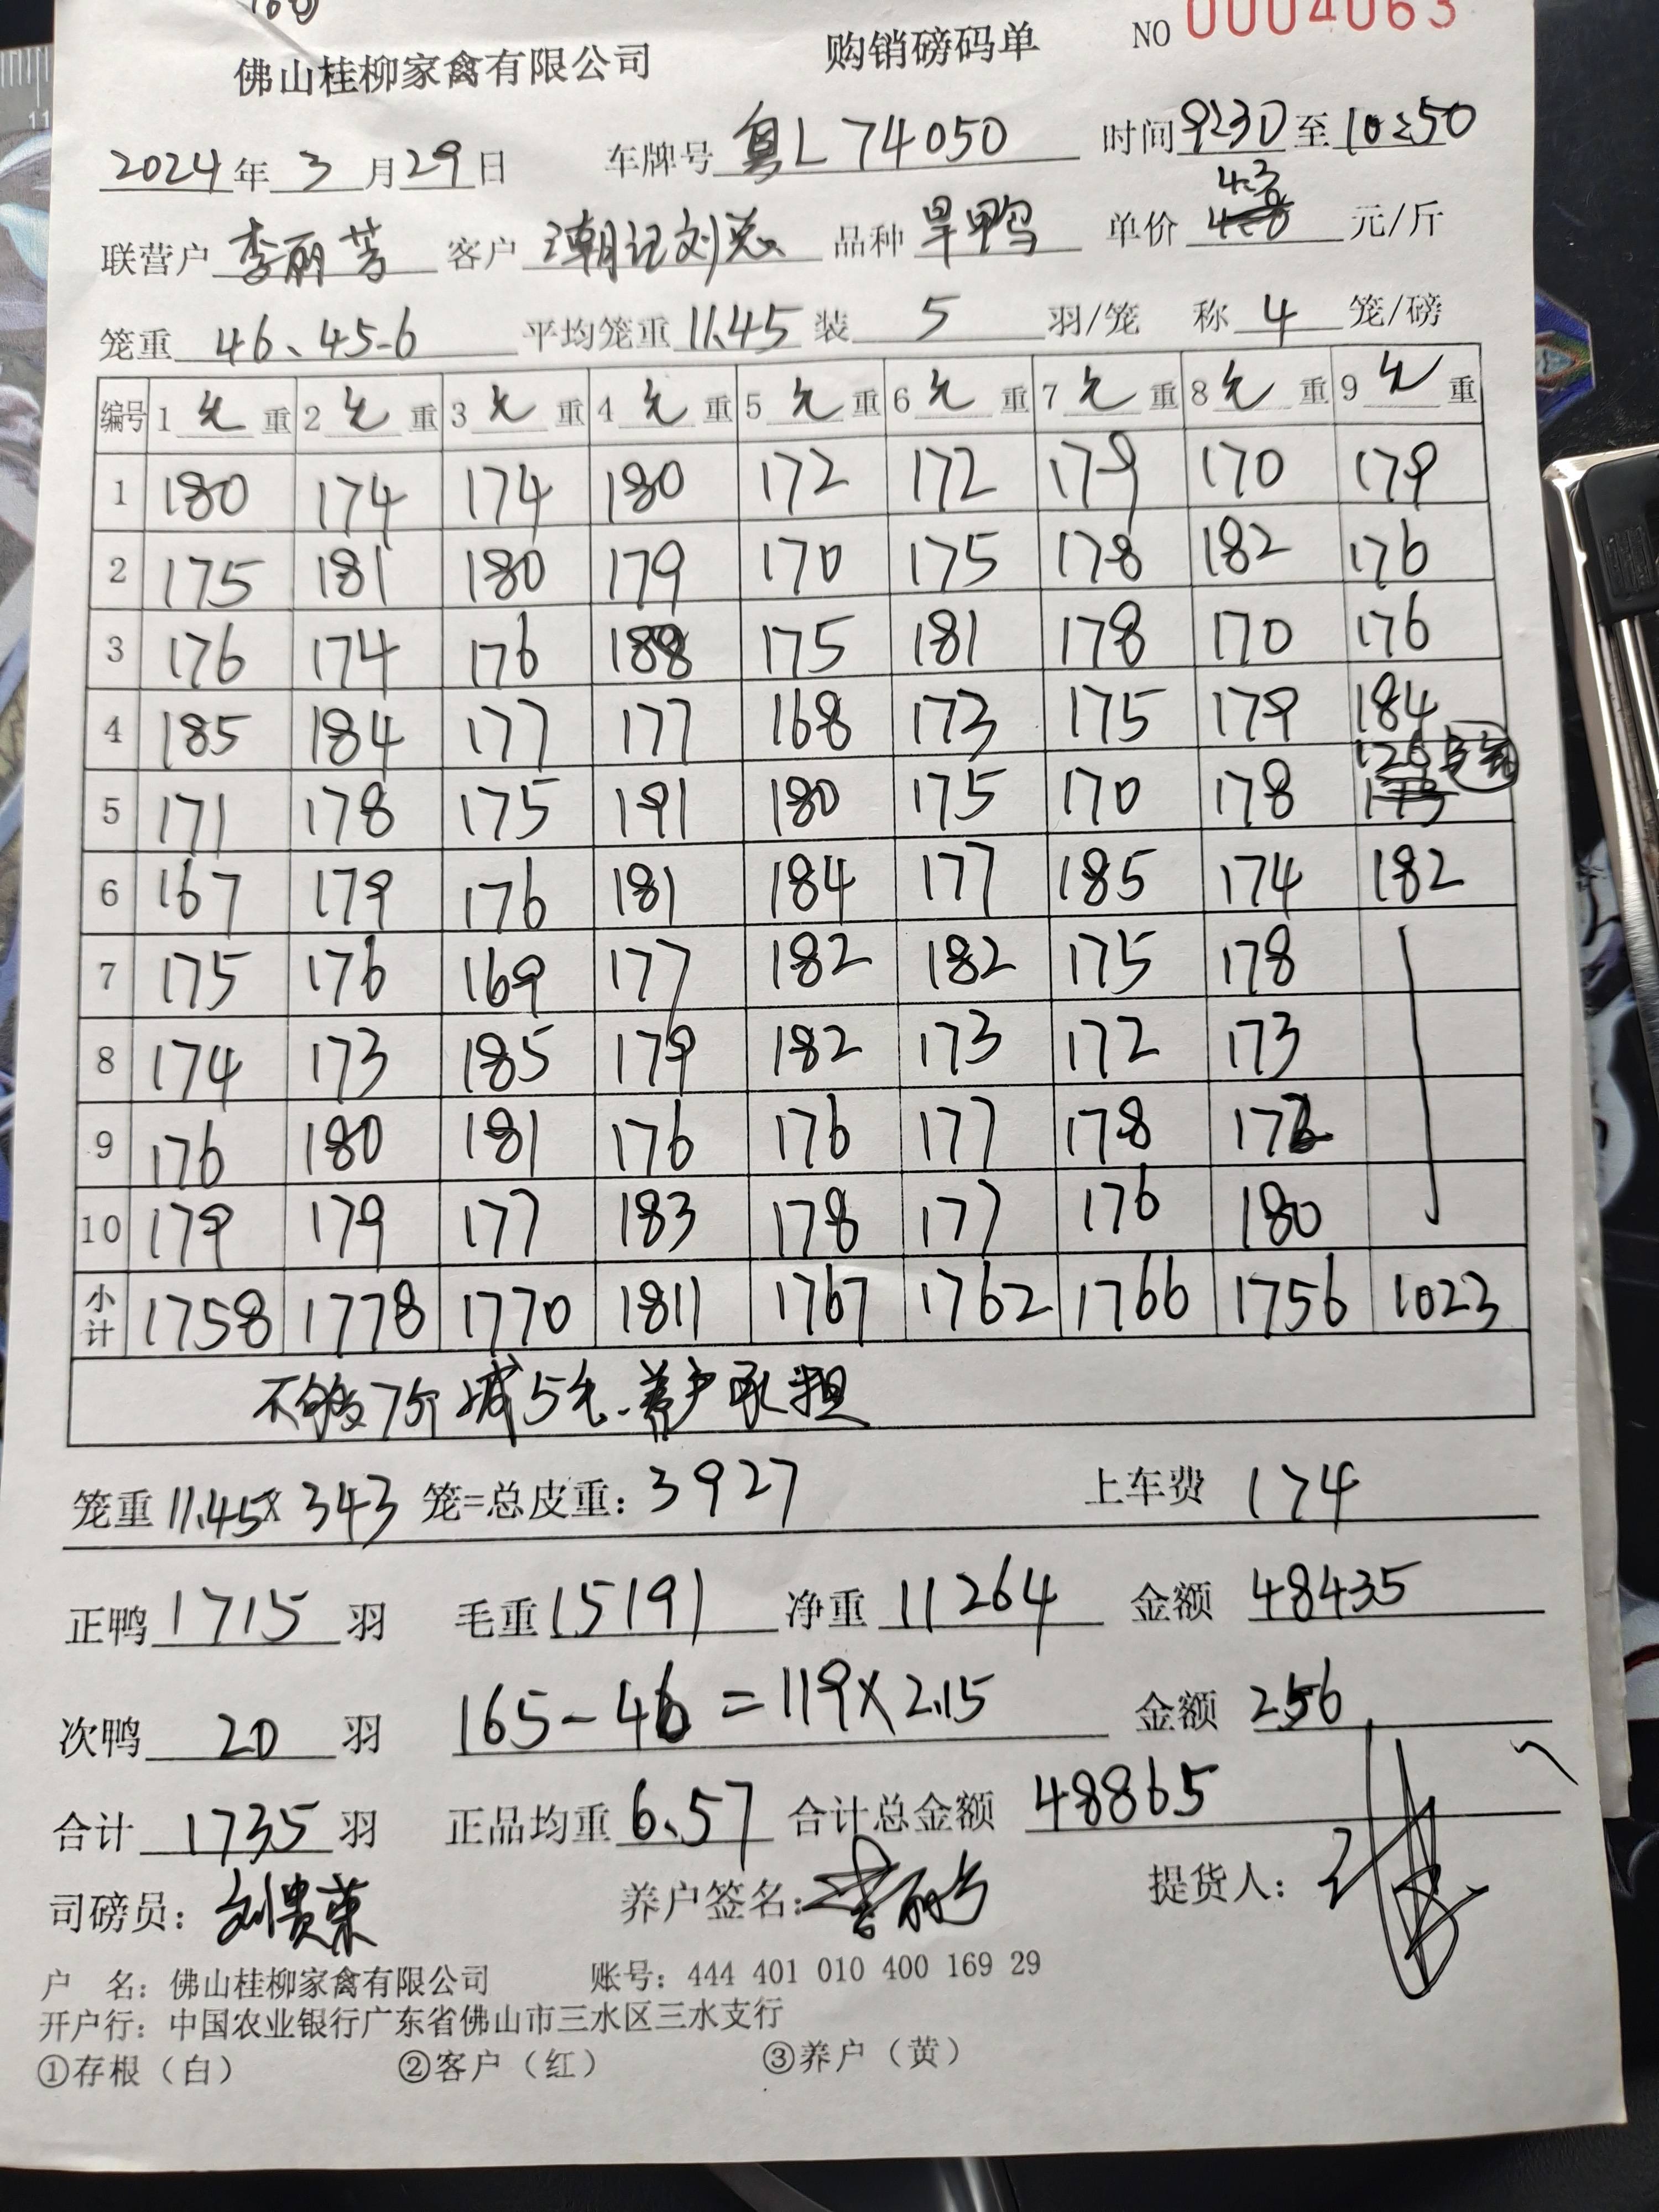 佛山桂柳家禽有限公司 购销磅码单 NO 0004063
2024年 3 月 29 日 车牌号 粤L 74050 时间 9:30 至 10:50
联营户 李丽芳 客户 潮记刘总 品种 旱鸭 单价 4.3 元/斤
笼重 46、45.6 平均笼重 11.45 装 5 羽/笼 称 4 笼/磅
编号 1 毛 重 2 毛 重 3 毛 重 4 毛 重 5 毛 重 6 毛 重 7 毛 重 8 毛 重 9 毛 重
1 180 174 174 180 172 172 179 170 179
2 175 181 180 179 170 175 178 182 176
3 176 174 176 188 175 181 178 170 176
4 185 184 177 177 168 173 175 179 184
5 171 178 175 191 180 175 170 178 126 3笼
6 167 179 176 181 184 177 185 174 182
7 175 176 169 177 182 182 175 178
8 174 173 185 179 182 173 172 173
9 176 180 181 176 176 177 178 172
10 179 179 177 183 178 177 176 180
小计 1758 1778 1770 1811 1767 1762 1766 1756 1023
不够7斤减5毛、养户承担
笼重 11.45 x 343 笼=总皮重: 3927 上车费 174
正鸭 1715 羽 毛重 15191 净重 11264 金额 48435
次鸭 20 羽 165-46=119×2.15 金额 256
合计 1735 羽 正品均重 6.57 合计总金额 48865
司磅员: 刘贵荣 养户签名: 李丽芳 提货人:
户 名: 佛山桂柳家禽有限公司 账号: 444 401 010 400 169 29
开户行: 中国农业银行广东省佛山市三水区三水支行
①存根（白） ②客户（红） ③养户（黄）